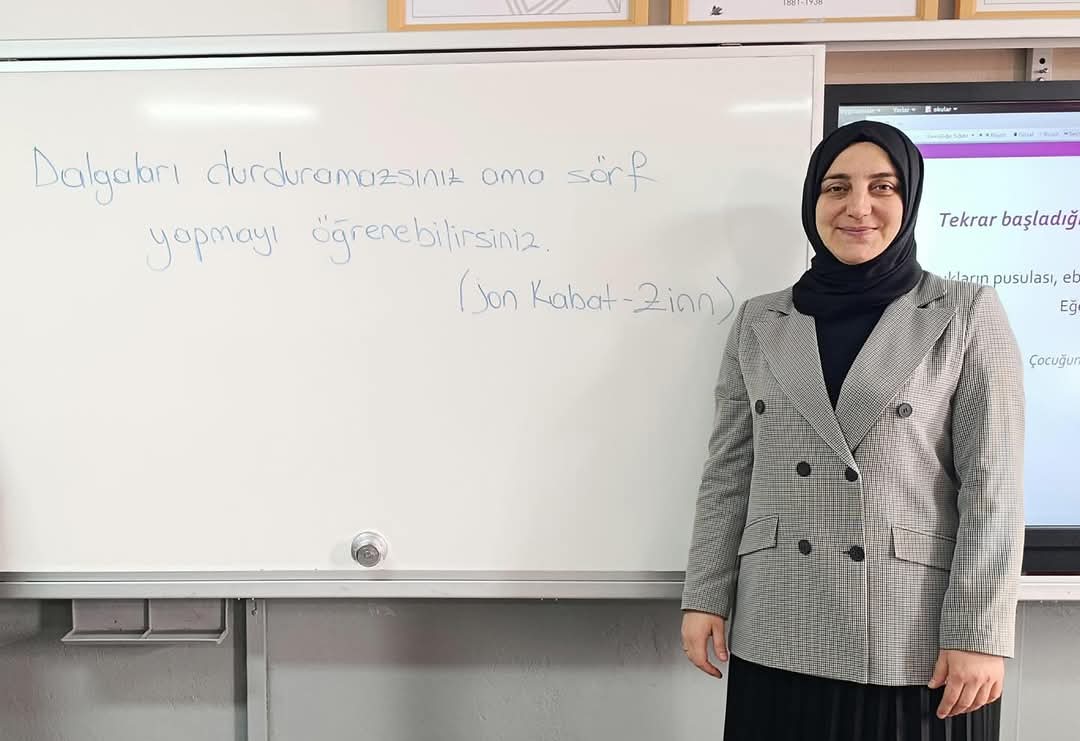 1881-1938
Dalgaları durduramazsınız ama sörf
yapmayı öğrenebilirsiniz.
(Jon Kabat-Zinn)
Yerler okular
Tekrar başladığı
ıkların pusulası, eb
Eğe
Çocuğun